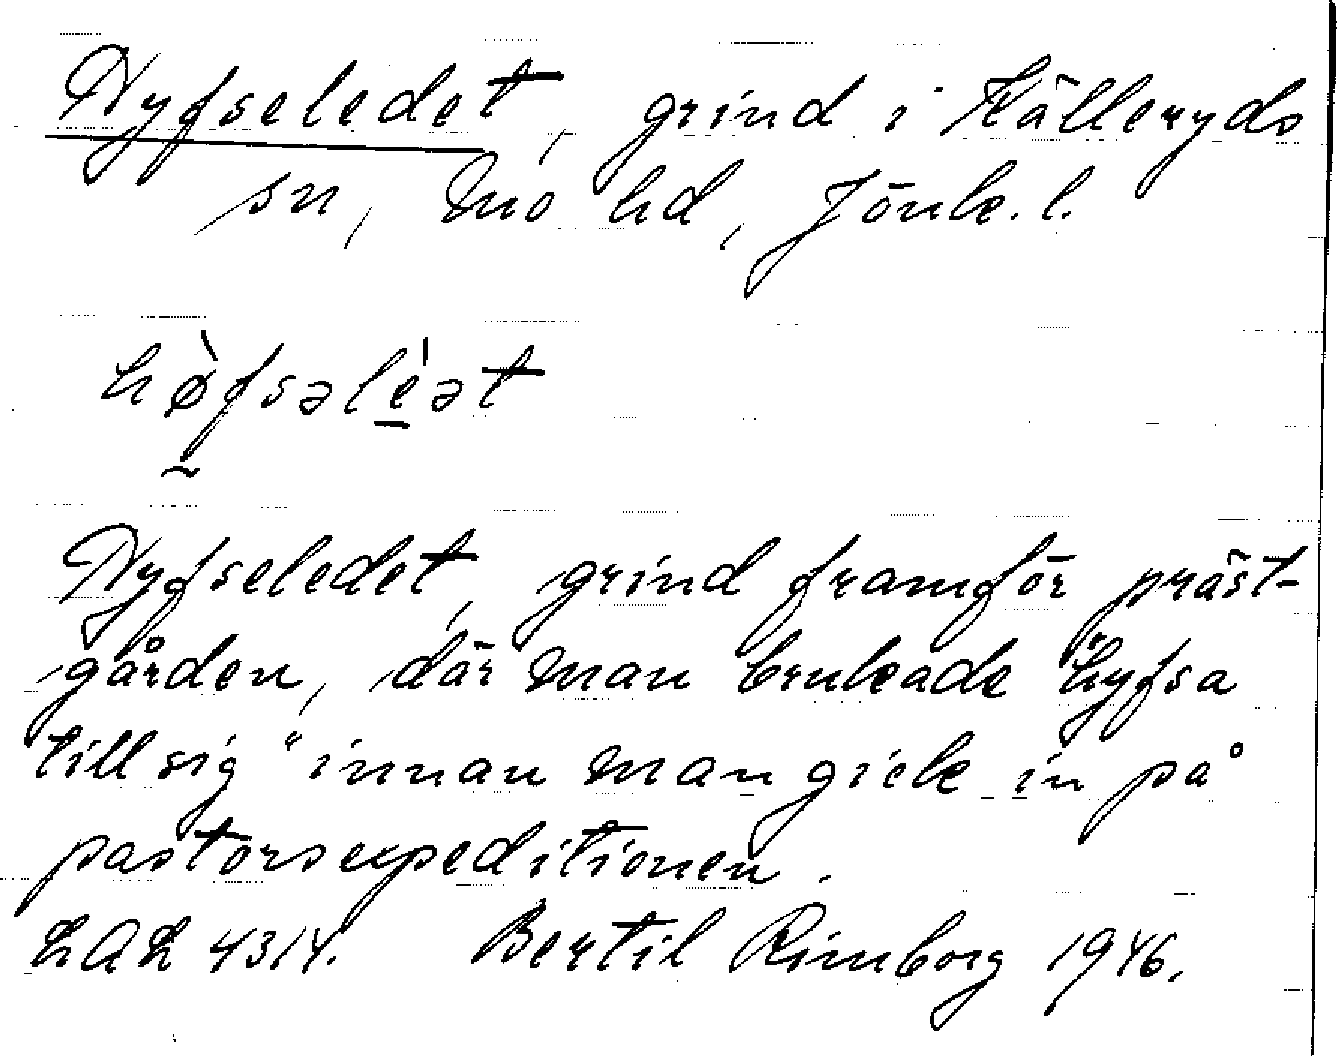 Hyfseledet, grind i Källeryds
sn, Mo hd, Jönk. l.
hø̀fsəlèət
Hyfseledet, grind framför präst-
gården, där man brukade "hyfsa
till sig" innan man gick in på
pastorsexpeditionen.
LAL 4314. Bertil Rimborg 1946.